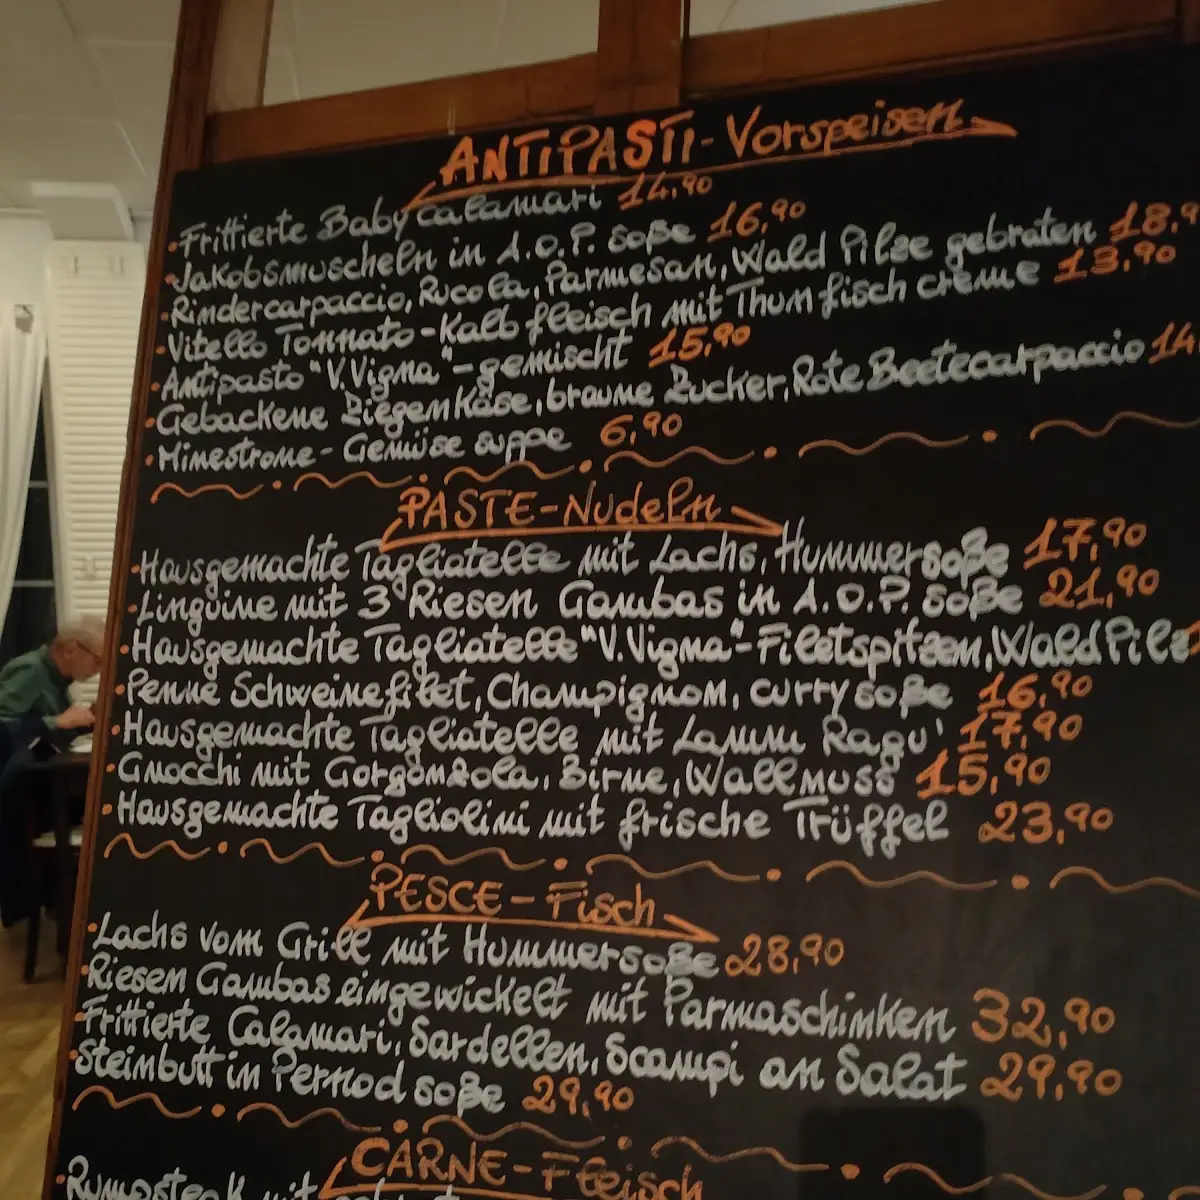 ANTIPASTI-Vorspeisen
•Frittierte Baby calamari 14,90
•Jakobsmuscheln in A.O.P. soße 16,90
•Rindercarpaccio, Rucola, Parmesan, Wald Pilze gebraten 18,9
•Vitello Tonnato-Kalb fleisch mit Thun fisch creme 13,90
•Antipasto "V.Vigna"-gemischt 15,90
•Gebackene Ziegenkäse, braune Zucker, Rote Beetecarpaccio 14
•Minestrone- Gemüse suppe 6,90
PASTE-Nudeln
•Hausgemachte Tagliatelle mit Lachs, Hummersoße 17,90
•Linguine mit 3 Riesen Gambas in A.O.P. soße 21,90
•Hausgemachte Tagliatelle "V.Vigna"-Filetspitzen, Wald Pilz
•Penne Schweinefilet, Champignon, curry soße 16,90
•Hausgemachte Tagliatelle mit Lamm Ragu' 17,90
•Gnocchi mit Gorgonzola, Birne, Wallmuss 15,90
•Hausgemachte Tagliolini mit frische Trüffel 23,90
PESCE-Fisch
•Lachs vom Grill mit Hummersoße 28,90
•Riesen Gambas eingewickelt mit Parmaschinken 32,90
•Frittierte Calamari, Sardellen, Scampi an Salat 29,90
•Steinbutt in Pernod soße 29,90
CARNE-Fleisch
•Rumpsteak mit